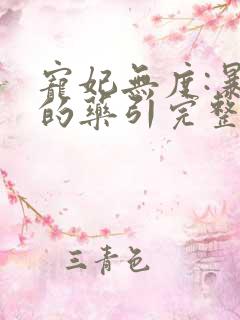 寵妃無度:暴
的藥引完整
三青色